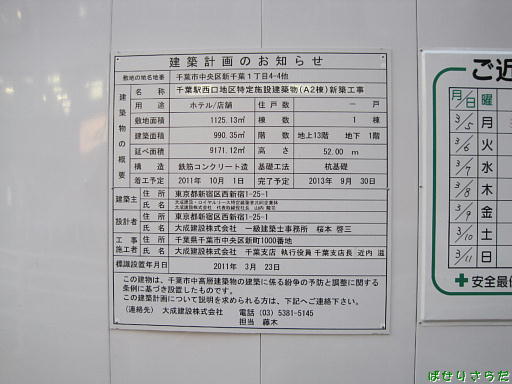 建築計画のお知らせ
敷地の地名地番 千葉市中央区新千葉1丁目4-4他
建築物の概要
名称 千葉駅西口地区特定施設建築物(A2棟)新築工事
用途 ホテル/店舗 住戸数 － 戸
敷地面積 1125.13㎡ 棟数 1棟
建築面積 990.35㎡ 階数 地上13階 地下 1階
延べ面積 9171.12㎡ 高さ 52.00 m
構造 鉄筋コンクリート造 基礎工法 杭基礎
着工予定 2011年 10月 1日 完了予定 2013年 9月 30日
建築主 住所 東京都新宿区西新宿1-25-1
氏名
設計者 住所 東京都新宿区西新宿1-25-1
氏名 大成建設株式会社 一級建築士事務所 桜本 啓三
工事施工者 住所 千葉県千葉市中央区新町1000番地
氏名 大成建設株式会社 千葉支店 執行役員 千葉支店長 近内 滋
標識設置年月日 2011年 3月 23日
この建物は、千葉市中高層建築物の建築に係る紛争の予防と調整に関する
条例に基づき設置したものです。
この建築計画について説明を求められる方は、下記へご連絡下さい。
(連絡先) 大成建設株式会社 電話 (03) 5381-5145
担当 藤木
ご近
月/日 曜
3/5 月
3/6 火
3/7 水
3/8 木
3/9 金
3/10 土
3/11 日
安全最優
ぱせりさらだ